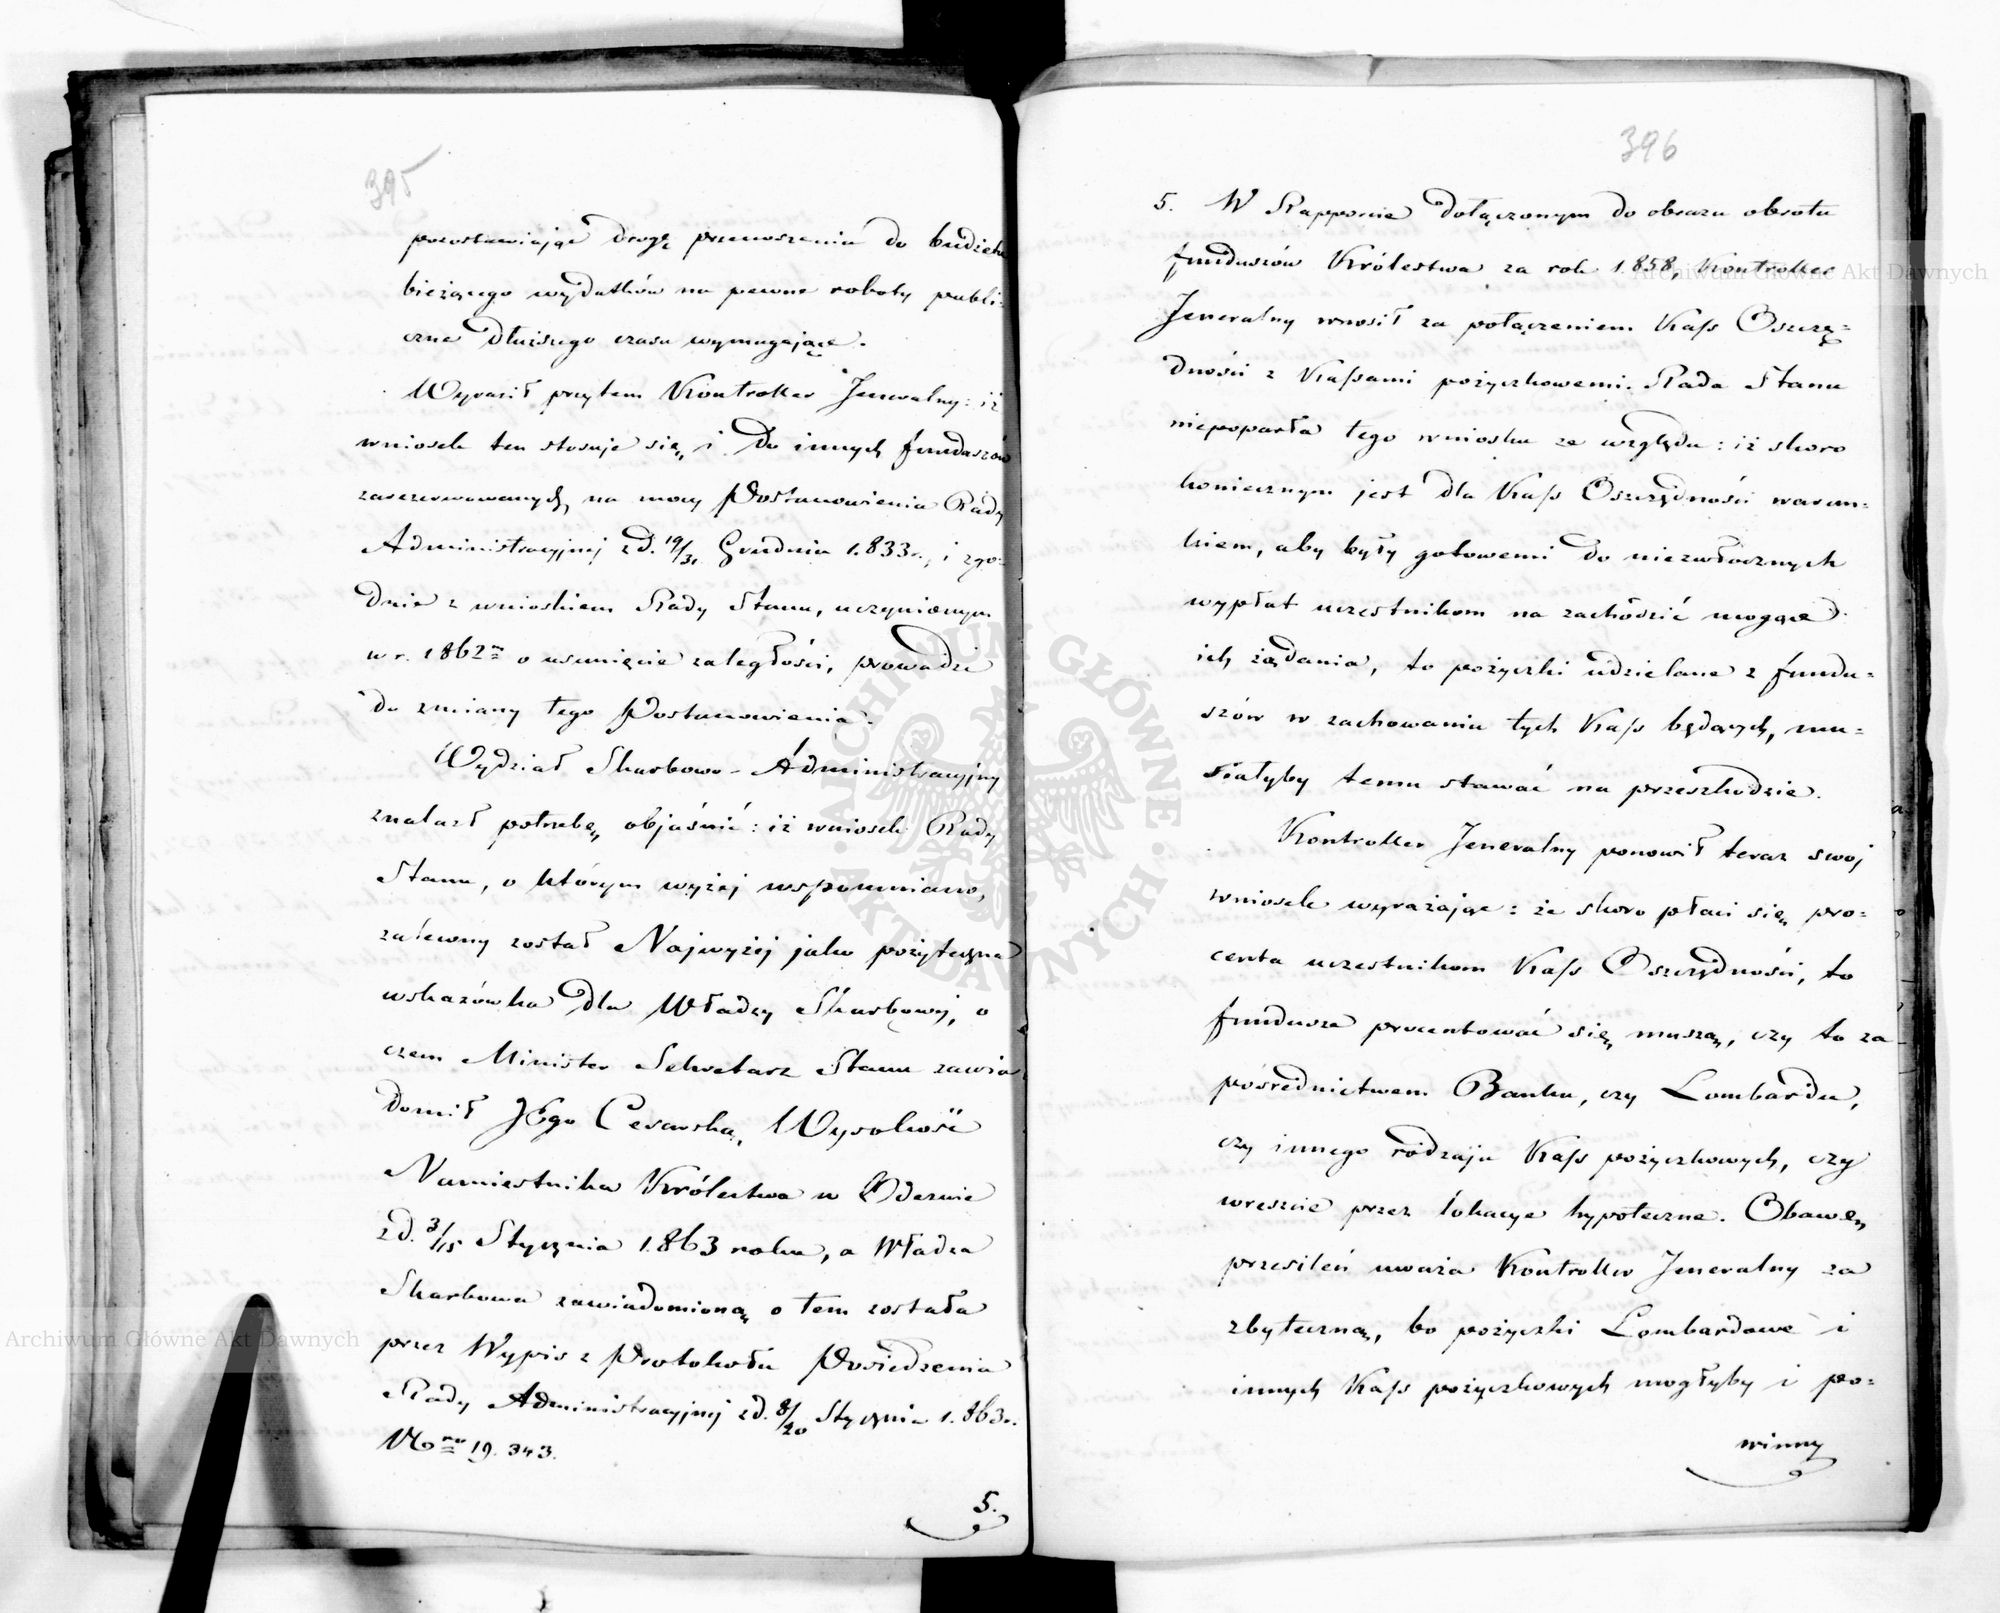 395
pozostawiając drogę przenoszenia do budżetu
bieżącego wydatków na pewne roboty publi-
czne dłuższego czasu wymagające.
Wyraził przytem Kontroller Jeneralny: iż
wniosek ten stosuje się i do innych funduszów
zarezerwowanych na mocy Postanowienia Rady
Administracyjnej z d. 19/31 Grudnia 1833 r., i zgo-
dnie z wnioskiem Rady Stanu, uczynionym
w r. 1862m o usunięcie zaległości, prowadzi
do zmiany tego Postanowienia.
Wydział Skarbowo-Administracyjny
znalazł potrzebę objaśnić: iż wniosek Rady
Stanu, o którym wyżej wspomniano,
zalewny został Najwyżej jako pożyteczna
wskazówka dla Władzy Skarbowej, o
czem Minister Sekretarz Stanu zawia
domił Jego Cesarską Wysokość
Namiestnika Królestwa w Odezwie
z d. 3/15 Stycznia 1863 roku, a Władza
Skarbowa zawiadomioną o tem została
przez Wypis z Protokołu Posiedzenia
Rady Administracyjnej z d. 8/20 Stycznia 1863 r.
No 19.343.
5.
396
5. W Rapporcie dołączonym do obrazu obrotu
funduszów Królestwa za rok 1858, Kontroller
Jeneralny wnosił za połączeniem Kass Oszczę-
dności z Kassami pożyczkowemi. Rada Stanu
niepoparła tego wniosku ze względu: iż skoro
koniecznym jest dla Kass Oszczędności warun-
kiem, aby były gotowemi do niezwłocznych
wypłat uczestnikom na zachodzić mogące
ich żądania, to pożyczki udzielane z fundu-
szów w zachowaniu tych Kass będących, mu-
siałyby temu stawać na przeszkodzie.
Kontroller Jeneralny ponowił teraz swoj
wniosek wyrażając: że skoro płaci się pro-
centa uczestnikom Kass Oszczędności, to
fundusze procentować się muszą, czy to za
pośrednictwem Banku, czy Lombardu,
czy innego rodzaju Kass pożyczkowych, czy
wreszcie przez lokacye hypoteczne. Obawę
przesileń uważa Kontroller Jeneralny za
zbyteczną, bo pożyczki Lombardowe i
innych Kass pożyczkowych mogłyby i po-
winny
Archiwum Główne Akt Dawnych
Archiwum Główne Akt Dawnych
ARCHIWUM GŁÓWNE · AKT DAWNYCH ·